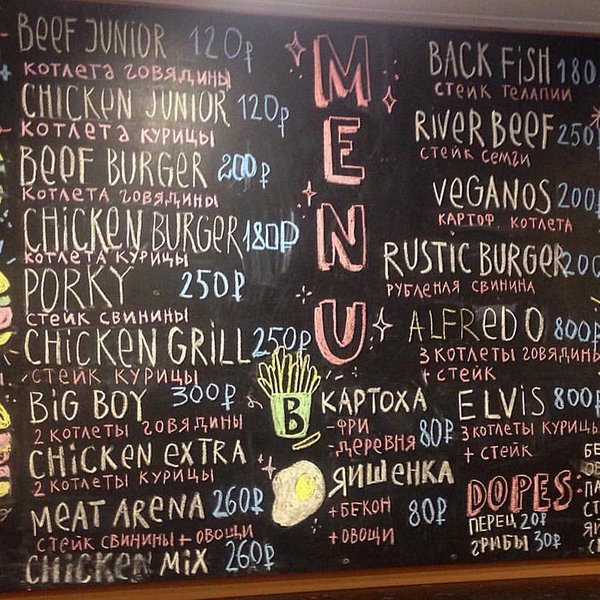 BEEF JUNIOR 120₽
КОТЛЕТА ГОВЯДИНЫ
CHICKEN JUNIOR 120₽
КОТЛЕТА КУРИЦЫ
BEEF BURGER 200₽
КОТЛЕТА ГОВЯДИНЫ
CHICKEN BURGER 180₽
КОТЛЕТА КУРИЦЫ
PORKY 250₽
СТЕЙК СВИНИНЫ
CHICKEN GRILL 250₽
СТЕЙК КУРИЦЫ
BIG BOY 300₽
2 КОТЛЕТЫ ГОВЯДИНЫ
CHICKEN EXTRA
2 КОТЛЕТЫ КУРИЦЫ
MEAT ARENA 260₽
СТЕЙК СВИНИНЫ + ОВОЩИ
CHICKEN MIX 260₽
MENU
B
КАРТОХА
-ФРИ
-ДЕРЕВНЯ 80₽
ЯИШЕНКА
+БЕКОН
+ОВОЩИ 80₽
BACK FISH 180
СТЕЙК ТЕЛАПИИ
RIVER BEEF 250
СТЕЙК СЕМГИ
VEGANOS 200
КАРТОФ. КОТЛЕТА
RUSTIC BURGER 200
РУБЛЕНАЯ СВИНИНА
ALFREDO 800₽
3 КОТЛЕТЫ ГОВЯДИНЫ
+ СТЕЙК
ELVIS 800₽
3 КОТЛЕТЫ КУРИЦЫ
+ СТЕЙК
DOPES:
ПЕРЕЦ 20₽
ГРИБЫ 30₽